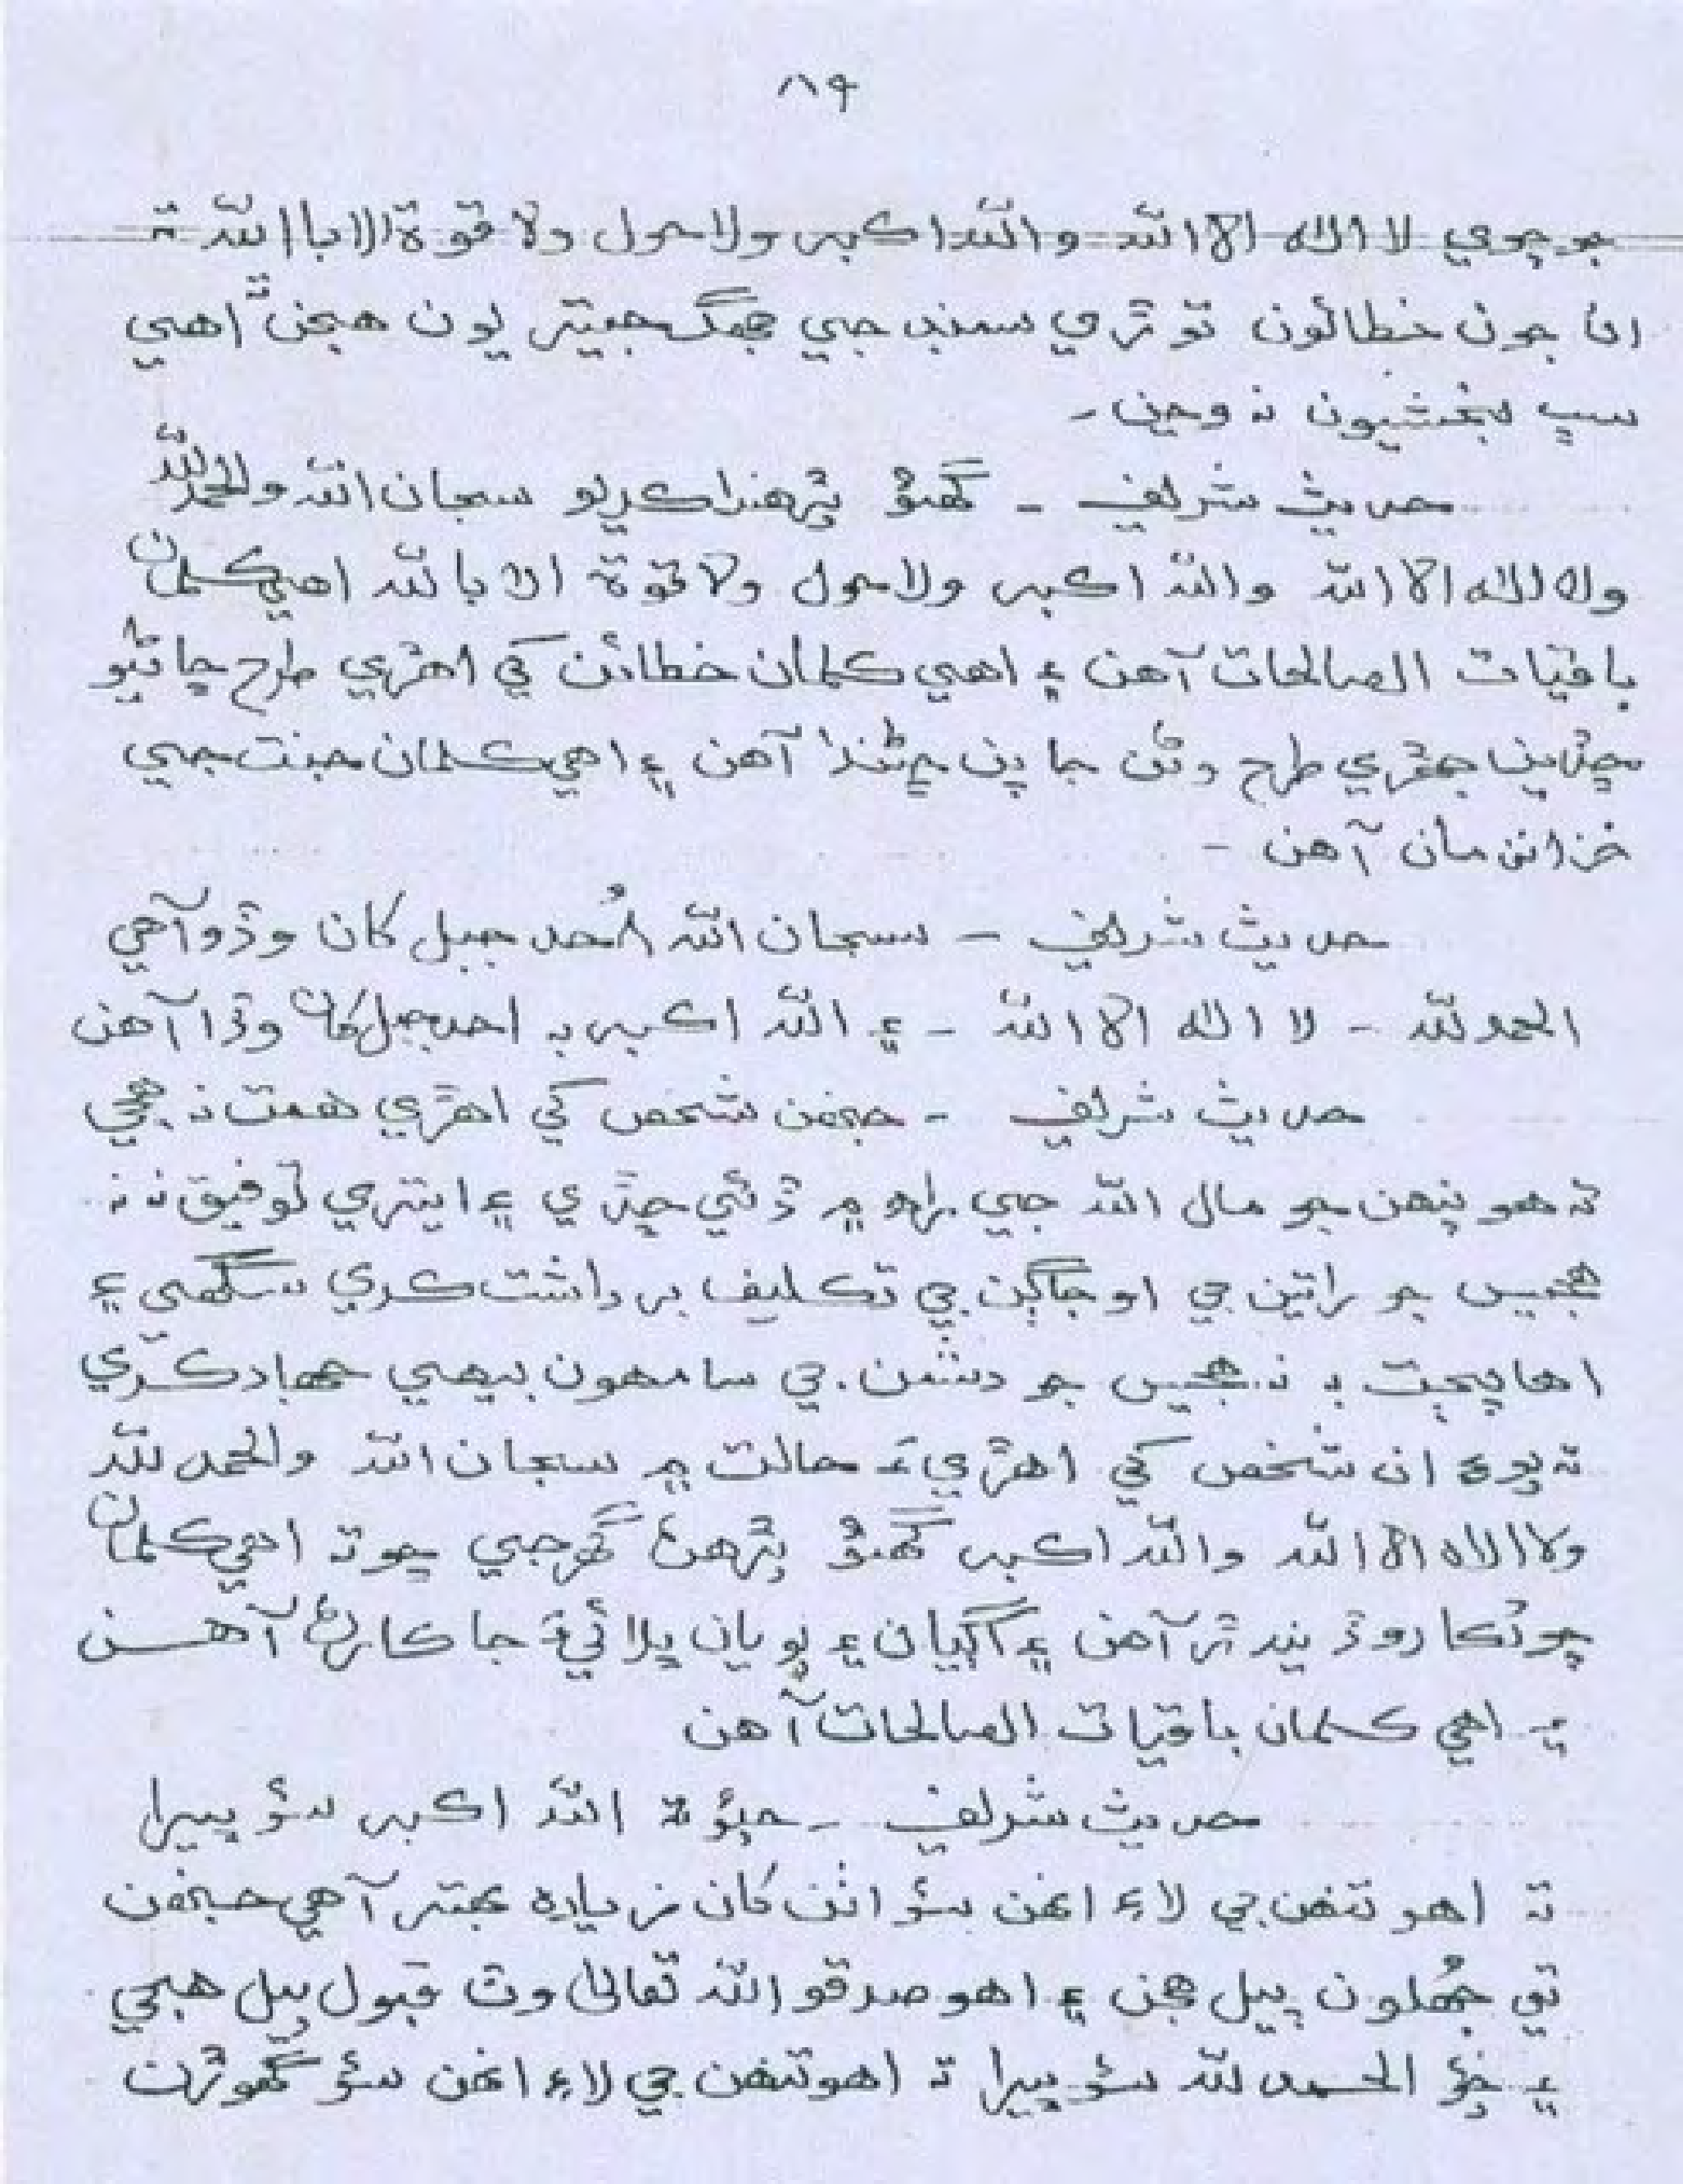 ۸۹
جو چوي لا اله الا الله والله اكبر ولا حول ولا قوة الا با الله ته
ان جون خطائون توڙي سمنڊ جي جھگ جيتريون هجن ته اهي
سڀ بخشيون وڃن۔
حديث شريف ۔ گھڻو پڙهندا ڪريو سبحان الله والحمد لله
ولا اله الا الله والله اكبر ولا حول ولا قوة الا بالله اهي ڪلمان
باقيات الصالحات آهن ۽ اهي ڪلمان خطائن کي اهڙي طرح ڇاڻيو
ڇڏين جهڙي طرح وڻن جا پن ڇڻندا آهن ۽ اهي ڪلمان جنت جي
خزانن مان آهن ۔
حديث شريف ۔ سبحان الله اُحد جبل کان وڏو آهي
الحمد لله ۔ لا اله الا الله ۔ ۽ الله اكبر به احد جبل کان وڏا آهن
حديث شريف ۔ جنهن شخص کي اهڙي همت نه هجي
ته هو پنهن جو مال الله جي راه ۾ ڏئي ڇڏي ۽ ايتري توفيق نه
هجيس جو راتين جي اوجاڳن جي تڪليف برداشت ڪري سگھي ۽
اها پڄت به نه هجيس جو دشمن جي سامهون بيهي جهاد ڪري
ته پوءِ ان شخص کي اهڙيءَ حالت ۾ سبحان الله والحمد لله
ولا الاه الا الله والله اكبر گھڻو پڙهڻ گھرجي ڇو ته اهي ڪلمان
ڇوٽڪارو ڏيندڙ آهن ۽ اڳيان ۽ پويان ڀلائيءَ جا ڪارڻ آهن
۽ اهي ڪلمان باقيات الصالحات آهن
حديث شريف ۔ چئو ته الله اكبر سؤ ڀيرا
ته اهو تنهن جي لاءِ انهن سؤ اٺن کان زياده بهتر آهي جنهن
تي جُھلون پيل هجن ۽ اهو صدقو الله تعالیٰ وٽ قبول پيل هجي
۽ چؤ الحمد لله سؤ ڀيرا ته اهو تنهن جي لاءِ انهن سؤ گھوڙن